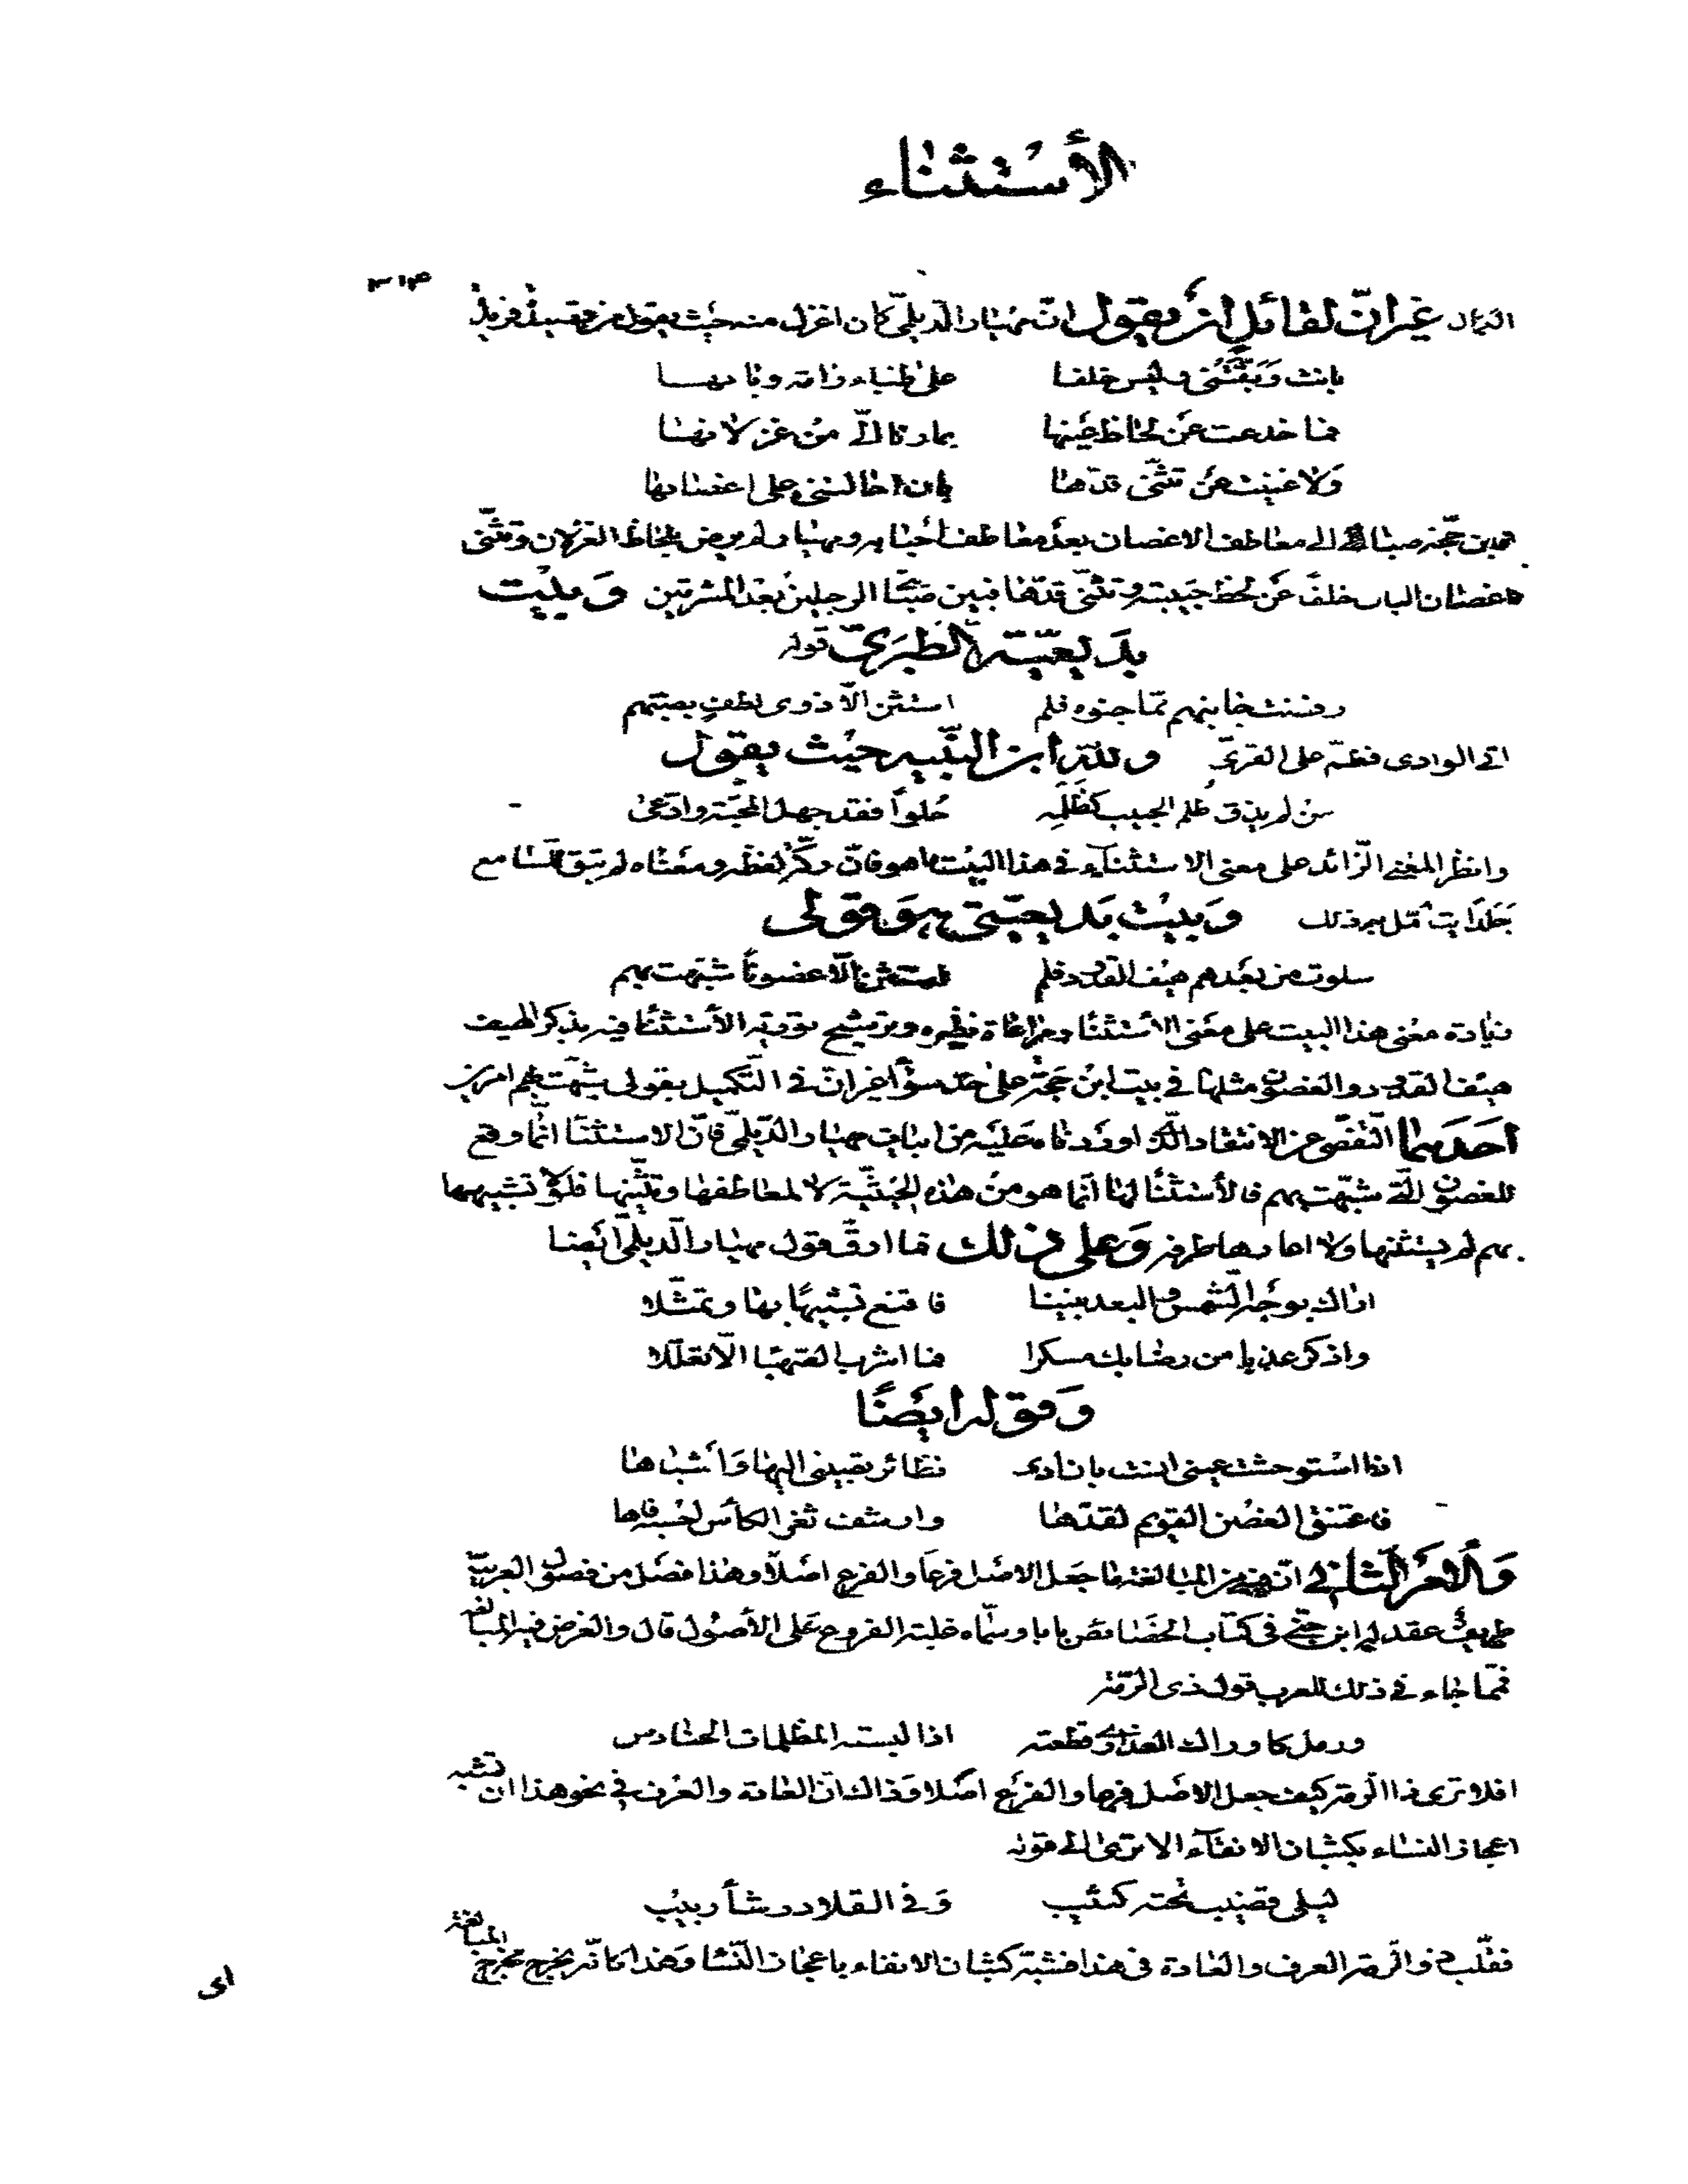 الأستثناء
٣١٤
الكمال غير انّ لقائل ان يقول انّ مهيار الديلمىّ كان اغزل منه حيث يقول من قصيدة فريدة
بانت وبقّتنى وليس خلفا على ظباء رامة وبانها
فما خدعت عن لحاظ عينها بما رنا الىّ من غزلانها
ولا غنيت عن تثنّى قدّها بان احالتنى على اغصانها
فمن حجّة صبا الى معاطف الاغصان بعد معاطف احبابه ومهيار لم يرض بلحاظ الغزلان وتثنّى
اغصان البان خلفا عن لحظ حبيبته وتثنّى قدّها فبين صبا الرجلين بعد المشرقين وبيت
بديعيّة الطبرىّ قوله
رفضت جانبهم ممّا جنوه فلم استثن الّا ذوى لطف بصبّهم
اتى الوادى فطمّ على القرىّ ولله ابن النبيه حيث يقول
من لم يذق ظلم الحبيب كظلمه حلوا فقد جهل المحبّة وادّعى
وانظر المعنى الزائد على معنى الاستثناء فى هذا البيت ما هو فان كرّر لفظه ومعناه لم يبق للسامع
جلدا يتأمّل به ذلك وبيت بديعيّتى هو قولى
سلوت من بعدهم هيف القدود فلم استثن الّا غصونا شبّهت بهم
زيادة معنى هذا البيت على معنى الأستثناء ومراعاة نظيره وترشيح تورية الأستثناء فيه بذكر الهيف
هيف القدود والغصون مثلها فى بيت ابن حجّة على حدّ سواء غير انّ فى التكميل بقولى شبّهت بهم امرين
احدهما التفصّى عن الانتقاد الّذى اوردناه عليه من ابيات مهيار الديلمىّ فانّ الاستثناء انّما وقع
للغصون الّتى شبّهت بهم فالأستثناء لها انّما هو من هذه الحيثيّة لا لمعاطفها وتثنّيها فلولا تشبيهها
بهم لم يستثنها ولا اعارها طرفه وعلى ذلك فما ارقّ قول مهيار الديلمىّ ايضا
اراك بوجه الشمس والبعد بيننا فاقنع تشبيها بها وتمثّلا
واذكر عذبا من رضابك مسكرا فما اشرب الصهبا الّا تعلّلا
وقوله ايضًا
اذا استوحشت عينى انست بان ارى نظائر تصبينى اليها واشباها
فاعتنق الغصن القويم لقدّها وارشف ثغر الكأس احسبه فاها
والأمر الثانى انّ فيه من المبالغة ما جعل الاصل فرعا والفرع اصلا وهذا فصل من فصول العربيّة
طريف عقد له ابن جنّى فى كتاب الخصائص بابا وسمّاه غلبة الفروع على الأصول قال والغرض فيه المبالغة
فممّا جاء فى ذلك للعرب قول ذى الرمّة
ورمل كاوراك العذارى قطعته اذا لبسته المظلمات الحنادس
افلا ترى ذا الرمة كيف جعل الاصل فرعا والفرع اصلا وذاك انّ العادة والعرف فى نحو هذا ان تشبه
اعجاز النساء بكثبان الانقاء الا ترى الى قوله
ليلى قضيب تحته كثيب وفى القلاد رشأ ربيب
فقلب ذو الرمة العرف والعادة فى هذا فشبّه كثبان الانقاء باعجاز النسا وهذا كانّه يخرج مخرج المبالغة
اى